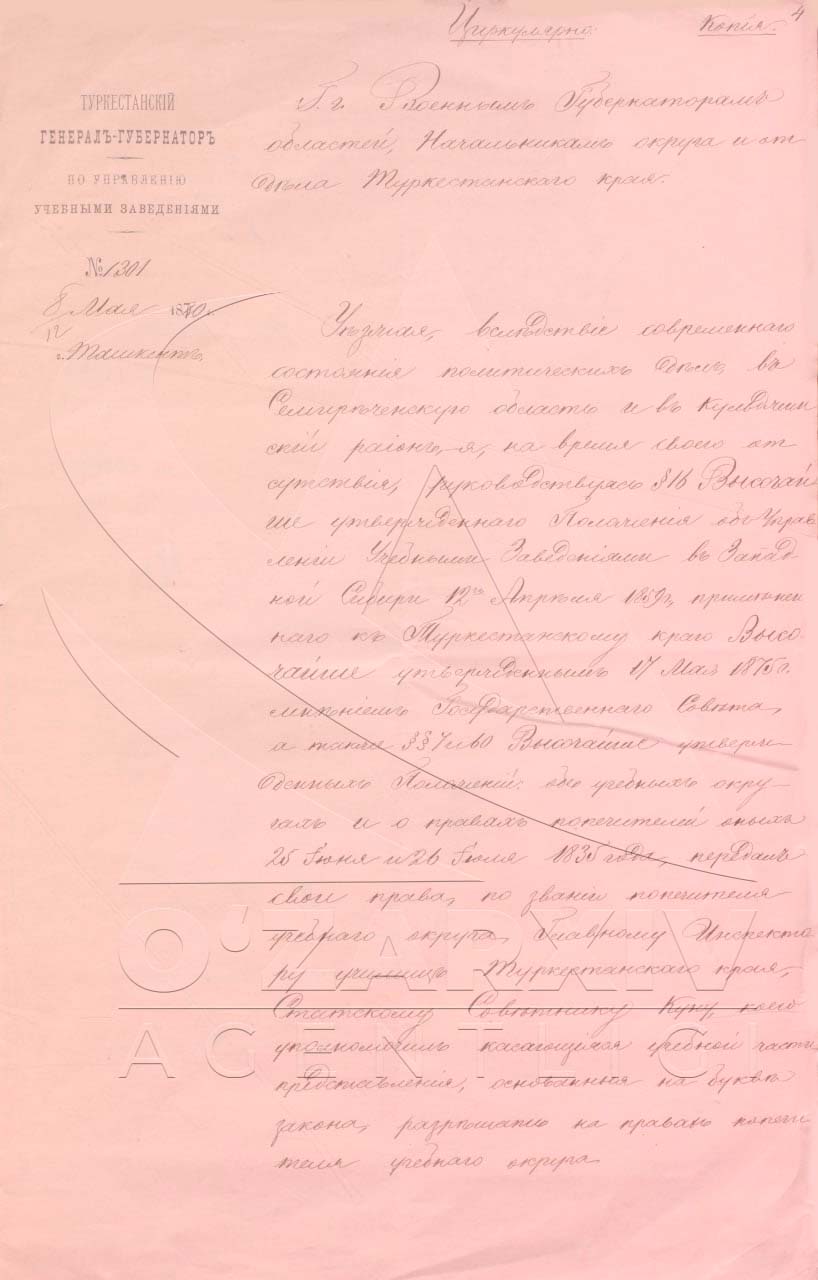 Циркулярно.
Копія.
4
ТУРКЕСТАНСКІЙ
ГЕНЕРАЛЪ-ГУБЕРНАТОРЪ
ПО УПРАВЛЕНІЮ
УЧЕБНЫМИ ЗАВЕДЕНІЯМИ
№ 1301
8/12 Мая 18
г. Ташкентъ.
Г.г. Военнымъ Губернаторамъ
областей, Начальникамъ округа и от
дѣла Туркестанскаго края.
Уѣзжая, вслѣдствіе современнаго
состоянія политическихъ дѣлъ, въ
Семирѣченскую область и въ Кульджин
скій раіонъ, я, на время своего от
сутствія, руководствуясь § 16 Высочай
ше утвержденнаго Положенія объ Управ
леніи Учебными Заведеніями въ Запад-
ной Сибири 12го Апрѣля 1859 г., примѣнен
наго къ Туркестанскому краю Высо-
чайше утвержденнымъ 17 Мая 1875 г.
мнѣніемъ Государственнаго Совѣта,
а также §§ 7 и 60 Высочайше утверж-
денныхъ Положеній: объ учебныхъ окру-
гахъ и о правахъ попечителей оныхъ
25 Іюня и 26 Іюля 1835 года, передалъ
свои права, по званію попечителя
учебнаго округа, Главному Инспекто-
ру училищъ Туркестанскаго края,
Статскому Совѣтнику Куну, коего
уполномочилъ касающіяся учебной части
представленія, основанныя на буквѣ
закона, разрѣшать на правахъ попечи
теля учебнаго округа
O‘ZARXIV
AGENTLIGI